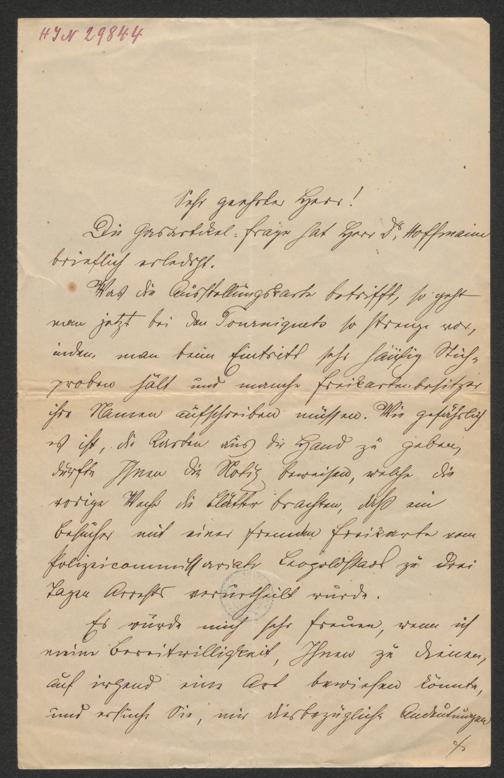 HIN 29844
Sehr geehrter Herr!
Die Gasartikel-frage hat Herr Dr Hoffmann
brieflich erledigt.
Was die Ausstellungskarte betrifft, so geht
man jetzt bei den Tourniquets so strenge vor,
indem man beim Eintritt sehr häufig Stich-
proben hält und manche Freikarten-besitzer
ihre Namen aufschreiben müssen. Wie gefährlich
es ist, die Karten aus der Hand zu geben,
dürfte Ihnen die Notiz beweisen, welche die
vorige Woche die Blätter brachten, daß ein
Besucher mit einer fremden Freikarte vom
Polizeicommissariate Leopoldstadt zu drei
Tagen Arrests verurtheilt wurde.
Es würde mich sehr freuen, wenn ich
meine Bereitwilligkeit, Ihnen zu dienen,
auf irgend eine Art beweisen könnte,
und ersuche Sie, mir diesbezügliche Andeutungen
./.